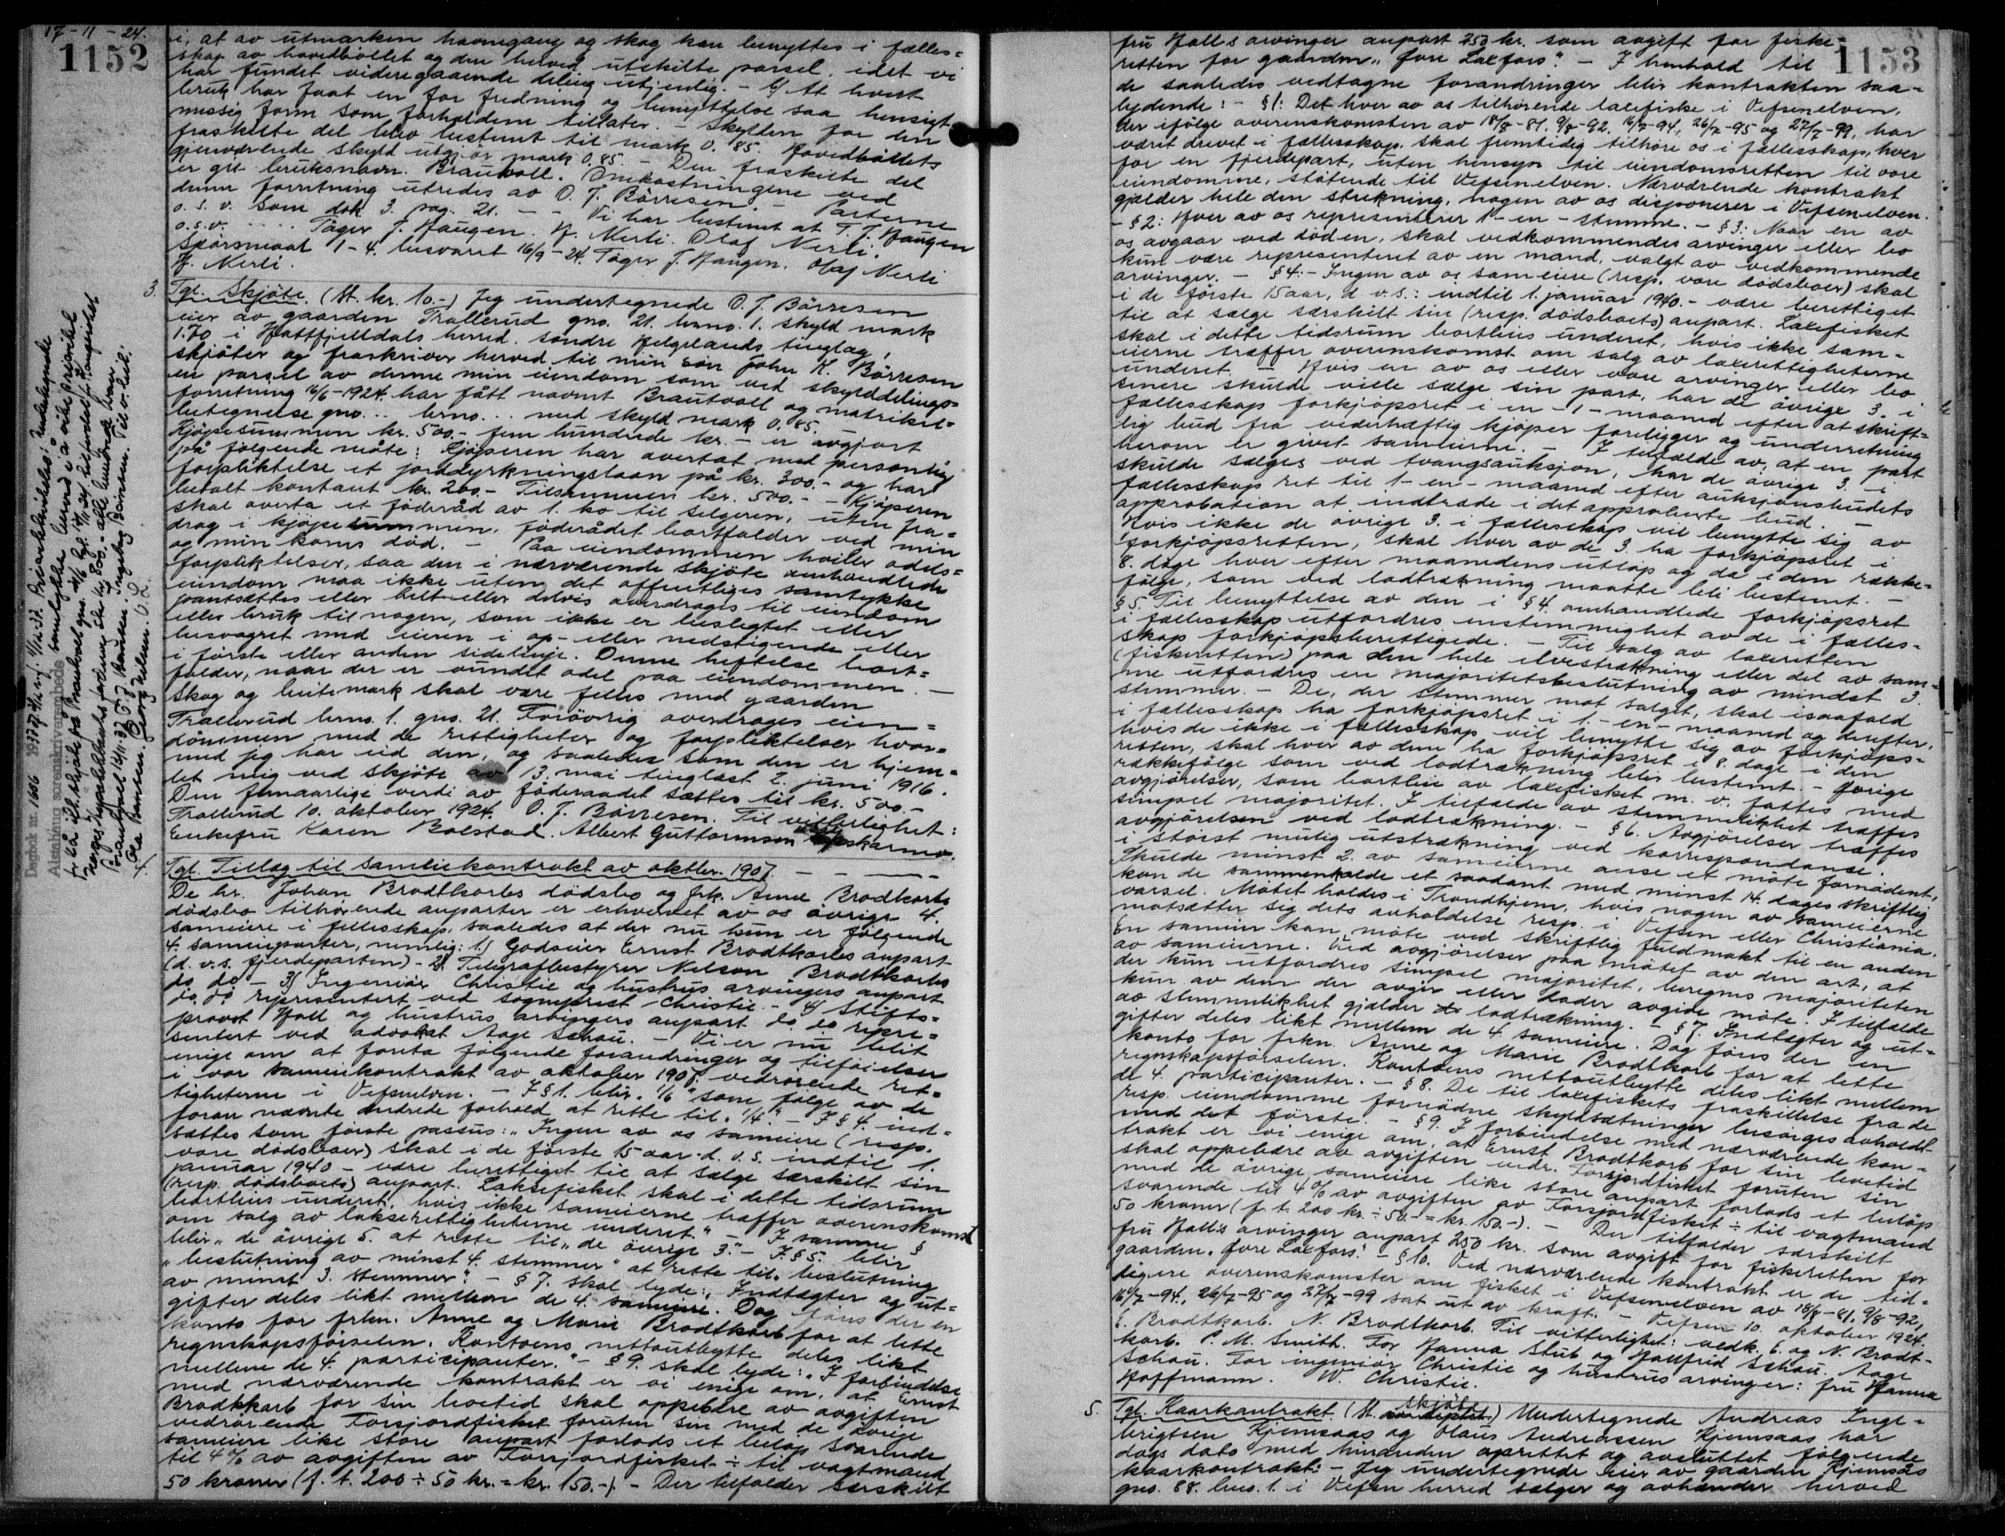 17-11-24.
1152
i, at av utmarken havnegang og skog kan benyttes i fælles-
skap av hovedbøllet og den herved utskilte parsel, idet vi
har fundet videregaaende deling utjenlig. - 4/ At hvert
bruk har faat en for fredning og benyttelse saa hensigts-
mæssig form som forholdene tillater. - Skylden for den
fraskilte del blev bestemt til mark 0.85. Hovedbøllets
gjenværende skyld utgjør mark 0.85. - Den fraskilte del
er git bruksnavn: Brauvoll. Omkostningene ved
denne forretning utredes av O. J. Børresen - Parterne
o.s.v. som dok 3. pag. 21. - - Vi har bestemt at T. J. Haugen
o.s.v. ..... Tøger J. Haugen. H. Nerli. Olaf Nerli.
Spørsmaal 1-4. besvaret 16/9-24. Tøger J. Haugen. Olaf Nerli
H. Nerli.
3. Tgl. Skjøte. (St. kr. 10.-) Jeg undertegnede O. J. Børresen
eier av gaarden Trallerud gno. 21. brno. 1. skyld mark
1.70 i Hatfjelldals herred, søndre Helgelands tinglag,
skjøter og fraskriver herved til min søn John K. Børresen
en parsel av denne min eiendom som ved skylddelings-
forretning 16/6-1924 har fått navnet Brautvoll og matrikel-
betegnelse gno... brno... med skyld mark 0.85.
Kjøpesummen kr. 500.- fem hundrede kr. - er avgjort
på følgende måte: Kjøperen har overtat med personlig
forpliktelse et jorddyrkningslaan på kr. 300.- og har
betalt kontant kr. 200.- Tilsammen kr. 500.- - Kjøperen
skal overta et føderåd av 1. ko til selgeren, uten fra-
drag i kjøpesummen, føderådet bortfalder ved min
og min kones død. - Paa eiendommen hviler odels-
forpliktelser, saa den i nærværende skjøte omhandlede
eiendom maa ikke uten det offentliges samtykke
pantsættes eller helt eller delvis overdrages til eiendom
eller bruk til nogen, som ikke er beslegtet eller
besvogret med eieren i op- eller nedstigende eller
i første eller anden sidelinje. Denne heftelse bort-
falder, naar der er vundet odel paa eiendommen. -
Skog og beitemark skal være felles med gaarden
Trallerud brno. 1. gno. 21. Forøvrig overdrages eien-
dommen med de rettigheter og forpliktelser hvor-
med jeg har eid den, og saaledes som den er hjem-
let mig ved skjøte av 13. mai tinglæst 2. juni 1916.
Den femaarlige verdi av føderaadet sættes til kr. 500.-
Trallerud 10. oktober 1924. O. J. Børresen. Til vitterlighet:
Enkefru Karen Bolstad. Albert Guttormsen
4. Tgl. Tillæg til sameiekontrakt av oktbr. 1907. - - -
De hr. Johan Brodtkorbs dødsbo og frk. Anne Brodtkorbs
dødsbo tilhørende anparter er erhvervet av os øvrige 4.
sameiere i fellesskap, saaledes at der nu kun er følgende
4. sameieparter, nemlig: 1) Godseier Ernst Brodtkorbs anpart
(d.v.s. fjerdeparten) - 2) Telegrafbestyrer Nelson Brodtkorbs
do do - 3) Ingeniør Christie og hustrus arvingers anpart
do do representert ved sogneprest Christie. - 4) Stifts-
provst Hall og hustrus arvingers anpart do do repre-
sentert ved advokat Aage Schou. - Vi er nu blit
enige om at foreta følgende forandringer og tilføielser
i vor sameiekontrakt av oktober 1907, vedrørende ret-
tigheterne i Vefsenelven. - I § 1. blir „1/6" som følge av de
foran nævnte ændrede forhold at rette til „1/4". - I § 4. ind-
sættes som første passus: „Ingen av os sameiere (resp.
vore dødsboer) skal i de første 15 aar - d.v.s. indtil 1.
januar 1940 - være berettiget til at sælge særskilt sin
(resp. dødsboets) anpart. Laksefisket skal i dette tidsrum
bortleies underet, hvis ikke sameierne træffer overenskomst
om salg av lakserettigheterne underet." - I samme §
blir „de øvrige 5. at rette til „de øvrige 3." - I § 5. blir
„beslutning av minst 4. stemmer" at rette til „beslutning
av minst 3. stemmer". - § 7. skal lyde: „Indtægter og ut-
gifter deles likt mellem de 4. sameiere. Dog føres der en
konto for frkn. Anne og Marie Brodtkorb for at lette
regnskapsførselen. Kontoens nettoutbytte deles likt
mellem de 4. participanter." - § 9. skal lyde: „I forbindelse
med nærværende kontrakt er vi enige om, at Ernst
Brodtkorb for sin levetid skal oppebære av avgiften
vedrørende Forsjordfisket foruten sin med de øvrige
sameiere like store anpart forlods et beløp svarende
til 4% av avgiften av Forsjordfisket ÷ til vagtmand
50 kroner (f. t. 200 ÷ 50 kr. = kr. 150.-) - Der tilfalder særskilt
Dagbok nr. 1656 1937
Alstahaug sorenskriverembede
1153
fru Halls arvinger anpart 250 kr. som avgift for fiske-
retten for gaarden „Øvre Laxfors". - I henhold til
de saaledes vedtagne forandringer blir kontrakten saa-
lydende: - § 1: Det hver av os tilhørende laxefiske i Vefsenelven,
der ifølge overenskomsten av 18/8-81, 9/8-92, 16/7-94, 26/7-95 og 27/7-99, har
været drevet i fællesskap, skal fremtidig tilhøre os i fællesskap, hver
for en fjerdepart, uten hensyn til eiendomsretten til vore
eiendomme, støtende til Vefsenelven. Nærværende kontrakt
gjælder hele den strekning, nogen av os disponerer i Vefsenelven.
- § 2: Hver av os representerer 1 - en - stemme. - § 3: Naar en av
os avgaar ved døden, skal vedkommendes arvinger eller bo
kun være representeret av en mand, valgt av vedkommende
arvinger. - § 4: - Ingen av os sameiere (resp. vore dødsboer) skal
i de første 15 aar, d.v.s.: indtil 1. januar 1940. - være berettiget
til at sælge særskilt sin (resp. dødsboets) anpart. Laxefisket
skal i dette tidsrum bortleies underet, hvis ikke sam-
eierne træffer overenskomst om salg av laxerettigheterne
underet. - Hvis en av os eller vore arvinger eller bo
senere skulde ville sælge sin part, har de øvrige 3. i
fællesskap forkjøpsret i en - 1 - maaned efter at skrift-
lig bud fra vederhæftig kjøper foreligger og underretning
herom er givet sameierne. - I tilfælde av, at en part
skulde sælges ved tvangsauksjon, har de øvrige 3. i
fællesskap ret til 1 - en - maaned efter auksjonsbudets
approbation at indtræde i det approberte bud. -
Hvis ikke de øvrige 3. i fællesskap vil benytte sig av
forkjøpsretten, skal hver av de 3. ha forkjøpsret i
8. dage hver efter maanedens utløp og da i den række-
følge, som ved lodtrækning maatte bli bestemt. -
§ 5. Til benyttelse av den i § 4. omhandlede forkjøpsret
i fællesskap utfordres enstemmighet av de i fælles-
skap forkjøpsberettigede. - Til salg av laxeretten
(fiskeretten) paa den hele elvestrækning eller del av sam-
me utfordres en majoritetsbeslutning av mindst 3.
stemmer. - De, der stemmer mot salget, skal isaafald
i fællesskap ha forkjøpsret i 1 - en - maaned og derefter,
hvis de ikke i fællesskap vil benytte sig av forkjøps-
retten, skal hver av dem ha forkjøpsret i 8. dage i den
rækkefølge som ved lodtrækning blir bestemt. - Øvrige
avgjørelser, som bortleie av laxefisket m. v. fattes med
simpel majoritet. I tilfælde av stemmelikhet træffes
avgjørelsen ved lodtrækning. - § 6. Avgjørelser træffes
i størst mulig utstrækning ved korrespondanse.
Skulde minst 2. av sameierne anse et møte fornødent,
kan de sammenkalde et saadant med minst 14. dages skriftlig
varsel. Møtet holdes i Trondhjem, hvis nogen av sameierne
motsætter sig dets avholdelse resp. i Vefsen eller Christiania.
En sameier kan møte ved skriftlig fuldmakt til en anden
av sameierne. Ved avgjørelser paa møtet av den art, at
der kun utfordres simpel majoritet, beregnes majoriteten
kun av dem der avgir eller lader avgive møte. I tilfælde
av stemmelikhet gjælder lodtrækning. - § 7. Indtægter og ut-
gifter deles likt mellem de 4. sameiere. Dog føres der en
konto for frkn. Anne og Marie Brodtkorb for at lette
regnskapsførselen. Kontoens nettoutbytte deles likt mellem
de 4. participanter. - § 8. De til laxefiskets fraskillelse fra de
resp. eiendomme fornødne skyldsætninger besørges avholdt
med det første. - § 9. I forbindelse med nærværende kon-
trakt er vi enige om, at Ernst Brodtkorb for sin levetid
skal oppebære av avgiften vedr. Forsjordfisket foruten sin
med de øvrige sameiere like store anpart forlods et beløp
svarende til 4% av avgiften av Forsjordfisket ÷ til vagtmand
50 kroner (f. t. 200 kr. ÷ 50.- = kr. 150.-). - Der tilfalder særskilt
fru Halls arvinger anpart 250 kr. som avgift for fiskeretten for
gaarden „Øvre Laxfors". - § 10. Ved nærværende kontrakt er de tid-
ligere overenskomster om fisket i Vefsenelven av 18/8-81, 9/8-92,
16/7-94, 26/7-95 og 27/7-99 sat ut av kraft. - Vefsen 10. oktober 1924.
E. Brodtkorb. N. Brodtkorb. Til vitterlighet: vedk. E. og N. Brodt-
korb. P. M. Smith. For Hanna Stub og Hallfrid Schou. Aage
Schou. For ingeniør Christie og hustrus arvinger: fru Hanna
Hoffmann. W. Christie.
5. Tgl. Kaarkontrakt (St. skjøte) Undertegnede Andreas Inge-
brigtsen Kjemsaas og Olaus Andreassen Kjemsaas har
dags dato med hinanden oprettet og avsluttet følgende
kaarkontrakt: - Jeg undertegnede eier av gaarden Kjemsås
gno. 88. brno. 1. i Vefsen herred sælger og avhænder herved